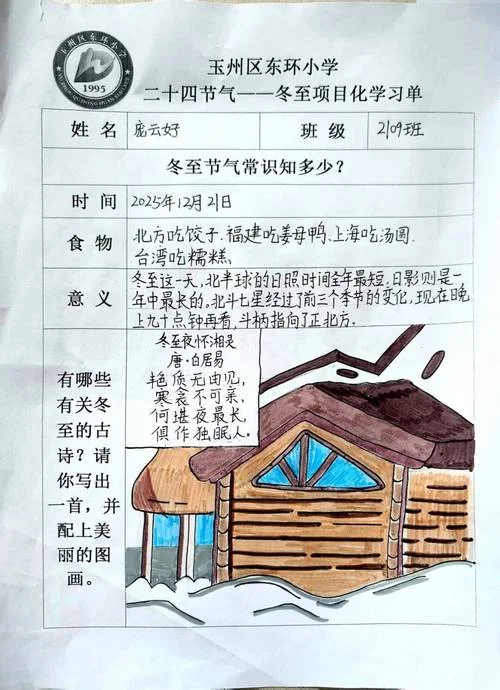 玉州区东环小学
1995
玉州区东环小学
二十四节气——冬至项目化学习单
姓名 庞云好 班级 2109班
冬至节气常识知多少?
时间 2025年12月21日
食物 北方吃饺子、福建吃姜母鸭、上海吃汤圆、
台湾吃糯糕、
意义 冬至这一天,北半球的日照时间全年最短,日影则是一
年中最长的。北斗七星经过了前三个季节的变化,现在晚
上九十点钟再看,斗柄指向了正北方。
有哪些
有关冬
至的古
诗?请
你写出
一首,并
配上美
丽的图
画。
冬至夜怀湘灵
唐·白居易
艳质无由见,
寒衾不可亲。
何堪夜最长,
俱作独眠人。